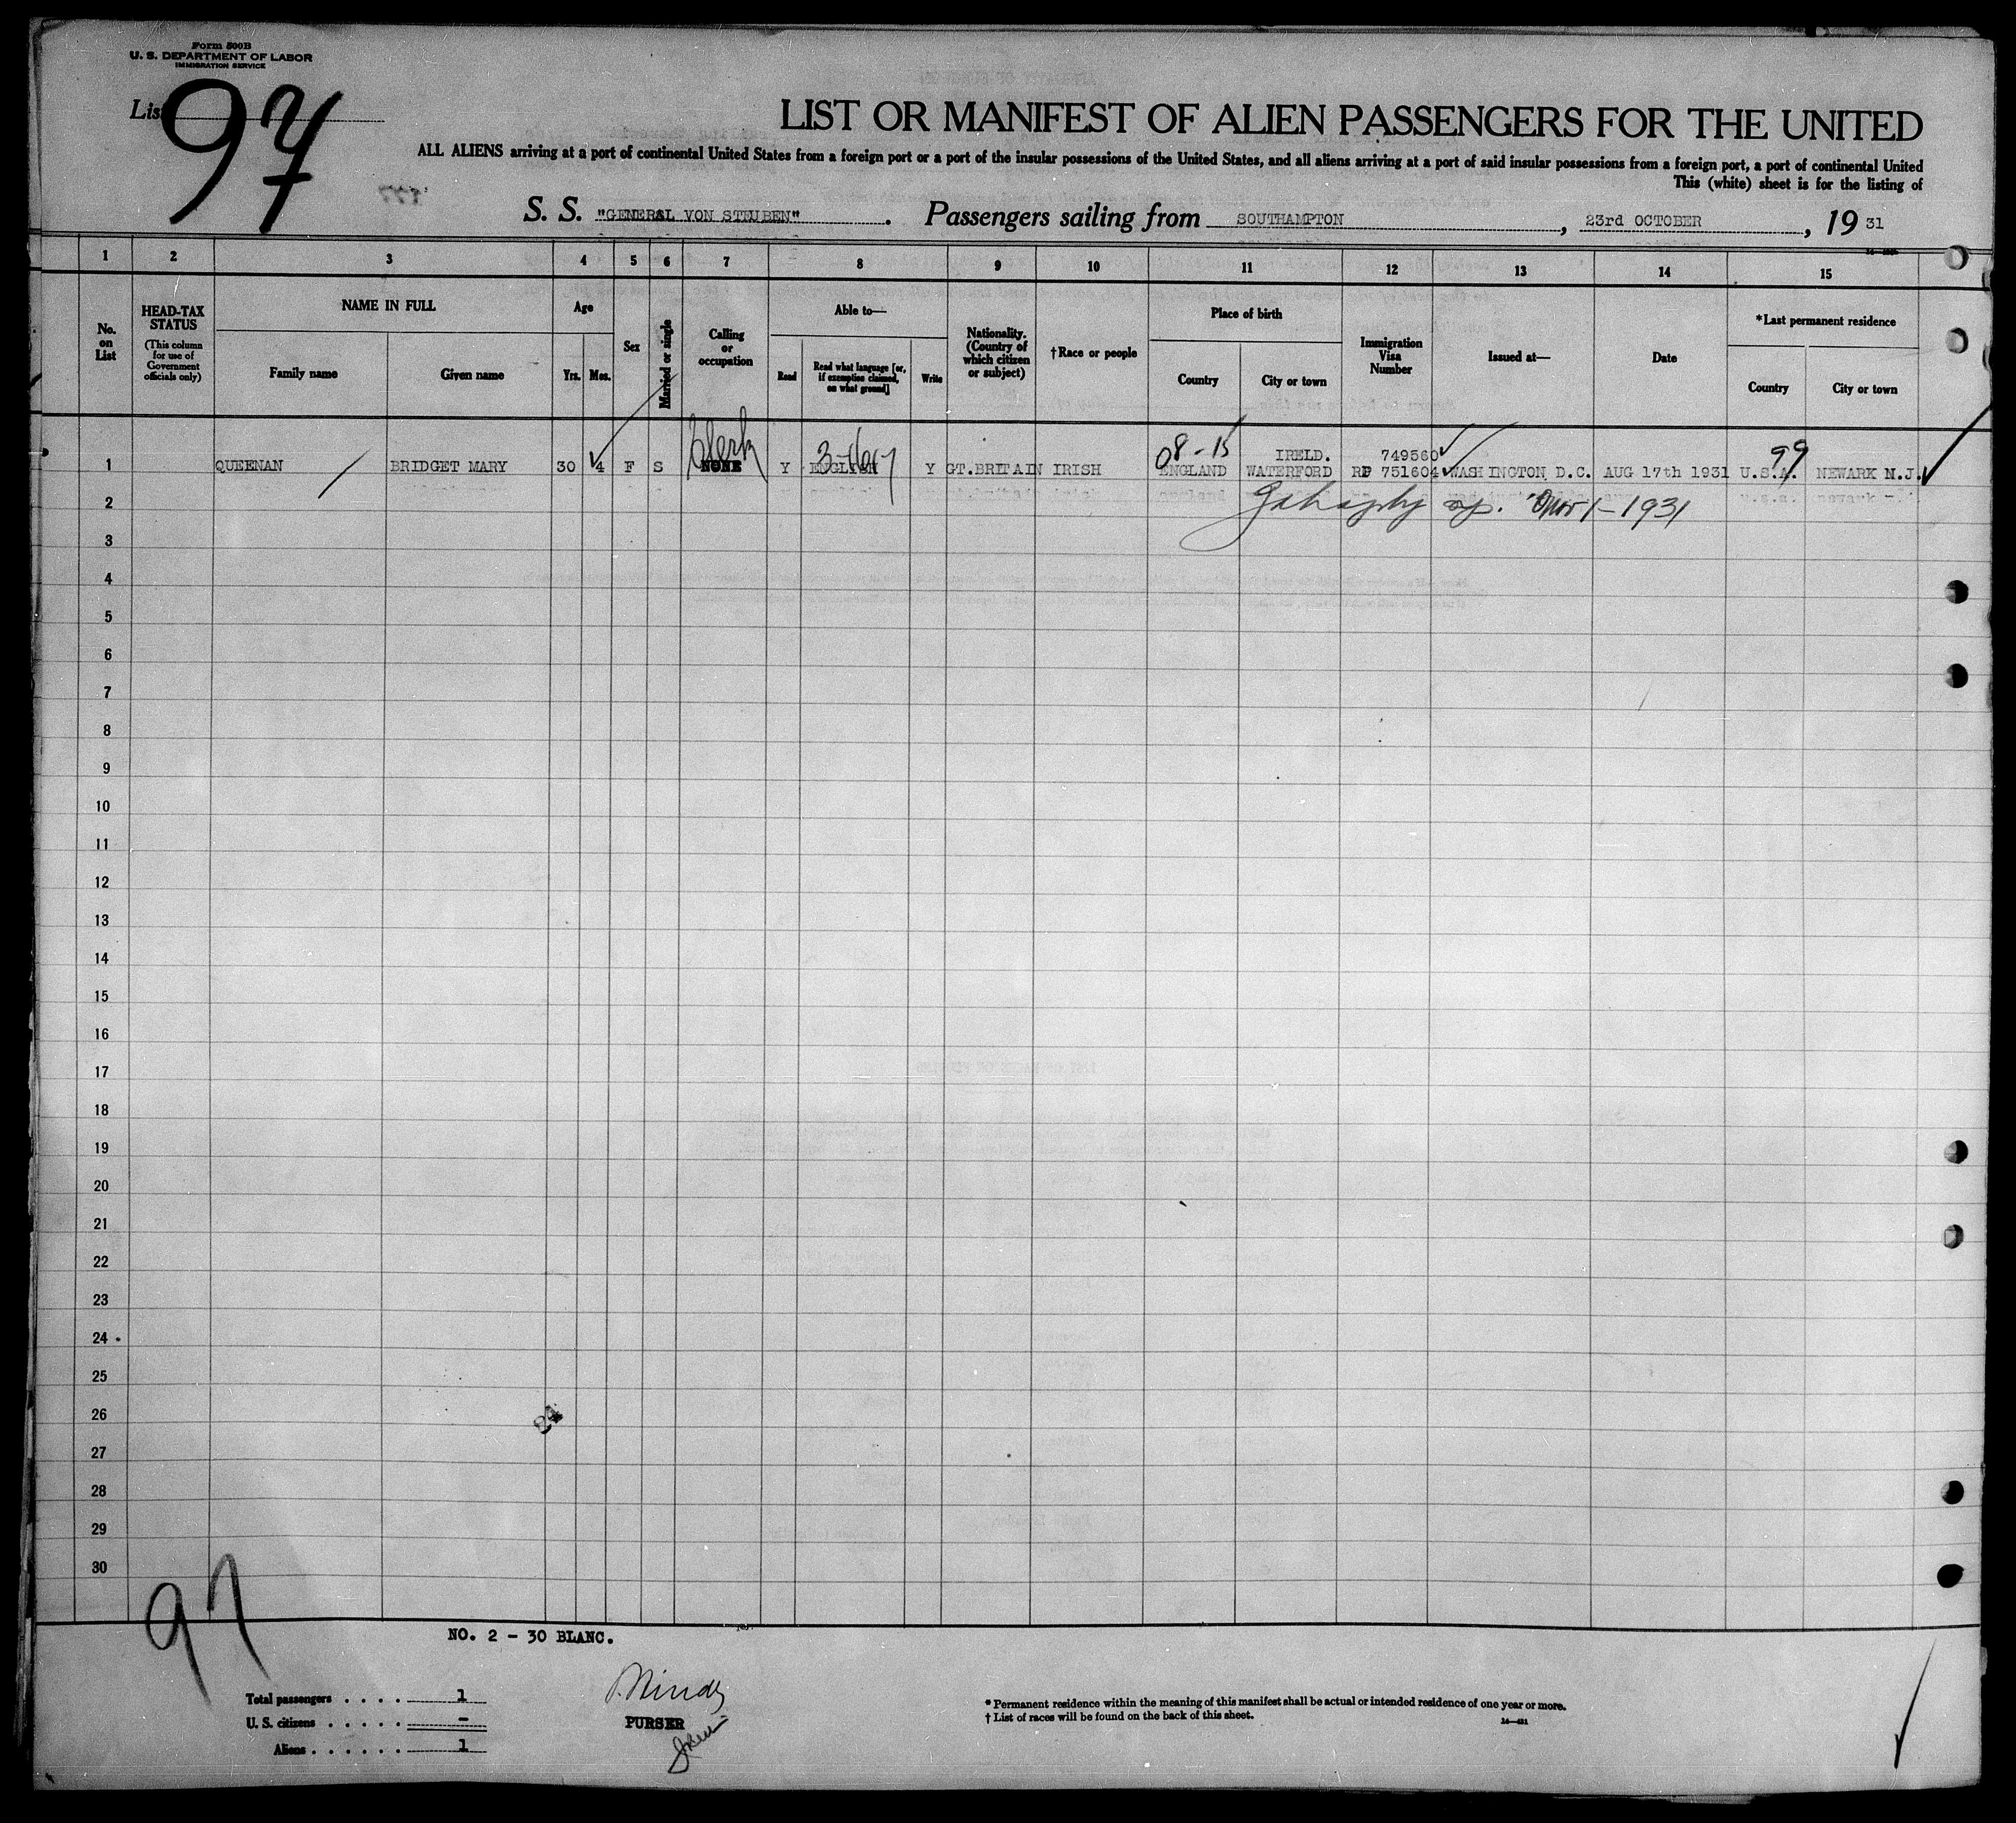 Form 500B
U. S. DEPARTMENT OF LABOR
IMMIGRATION SERVICE
List 97
LIST OR MANIFEST OF ALIEN PASSENGERS FOR THE UNITED
ALL ALIENS arriving at a port of continental United States from a foreign port or a port of the insular possessions of the United States, and all aliens arriving at a port of said insular possessions from a foreign port, a port of continental United
This (white) sheet is for the listing of
S. S. "GENERAL VON STEUBEN". Passengers sailing from SOUTHAMPTON, 23rd OCTOBER, 1931
1 2 3 4 5 6 7 8 9 10 11 12 13 14 15
No. on List
HEAD-TAX STATUS (This column for use of Government officials only)
NAME IN FULL
Family name Given name
Age
Yrs. Mos.
Sex
Married or single
Calling or occupation
Able to—
Read Read what language [or, if exemption claimed, on what ground] Write
Nationality. (Country of which citizen or subject)
†Race or people
Place of birth
Country City or town
Immigration Visa Number
Issued at—
Date
*Last permanent residence
Country City or town
Clerk 08-15 IRELD. 749560 99
1 QUEENAN BRIDGET MARY 30 4 F S NONE Y ENGLISH Y GT.BRITAIN IRISH ENGLAND WATERFORD RP 751604 WASHINGTON, D.C. AUG 17th 1931 U.S.A. NEWARK N.J.
2 1931
3
4
5
6
7
8
9
10
11
12
13
14
15
16
17
18
19
20
21
22
23
24
25
26
27
28
29
30
97
NO. 2 - 30 BLANC.
Total passengers . . . . 1
U. S. citizens . . . . . -
Aliens . . . . . . 1
PURSER
* Permanent residence within the meaning of this manifest shall be actual or intended residence of one year or more.
† List of races will be found on the back of this sheet.